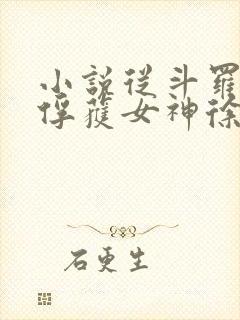 小說從斗羅
俘獲女神徐
石更生